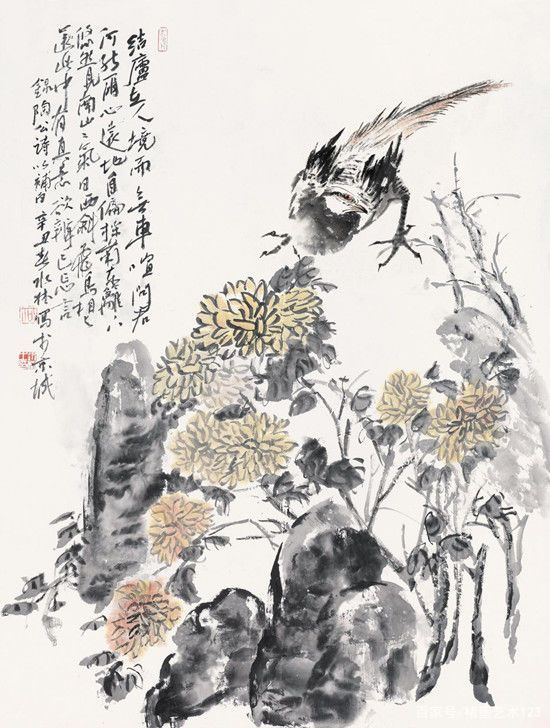 结廬在人境而無車喧问君
何能爾心遠地自偏採菊东籬下
悠然見南山〻氣日西斜飛鳥相與
還此中有真意欲辨已忘言
錄陶公诗以補白辛丑水林寫于京城
百家号 艺术123